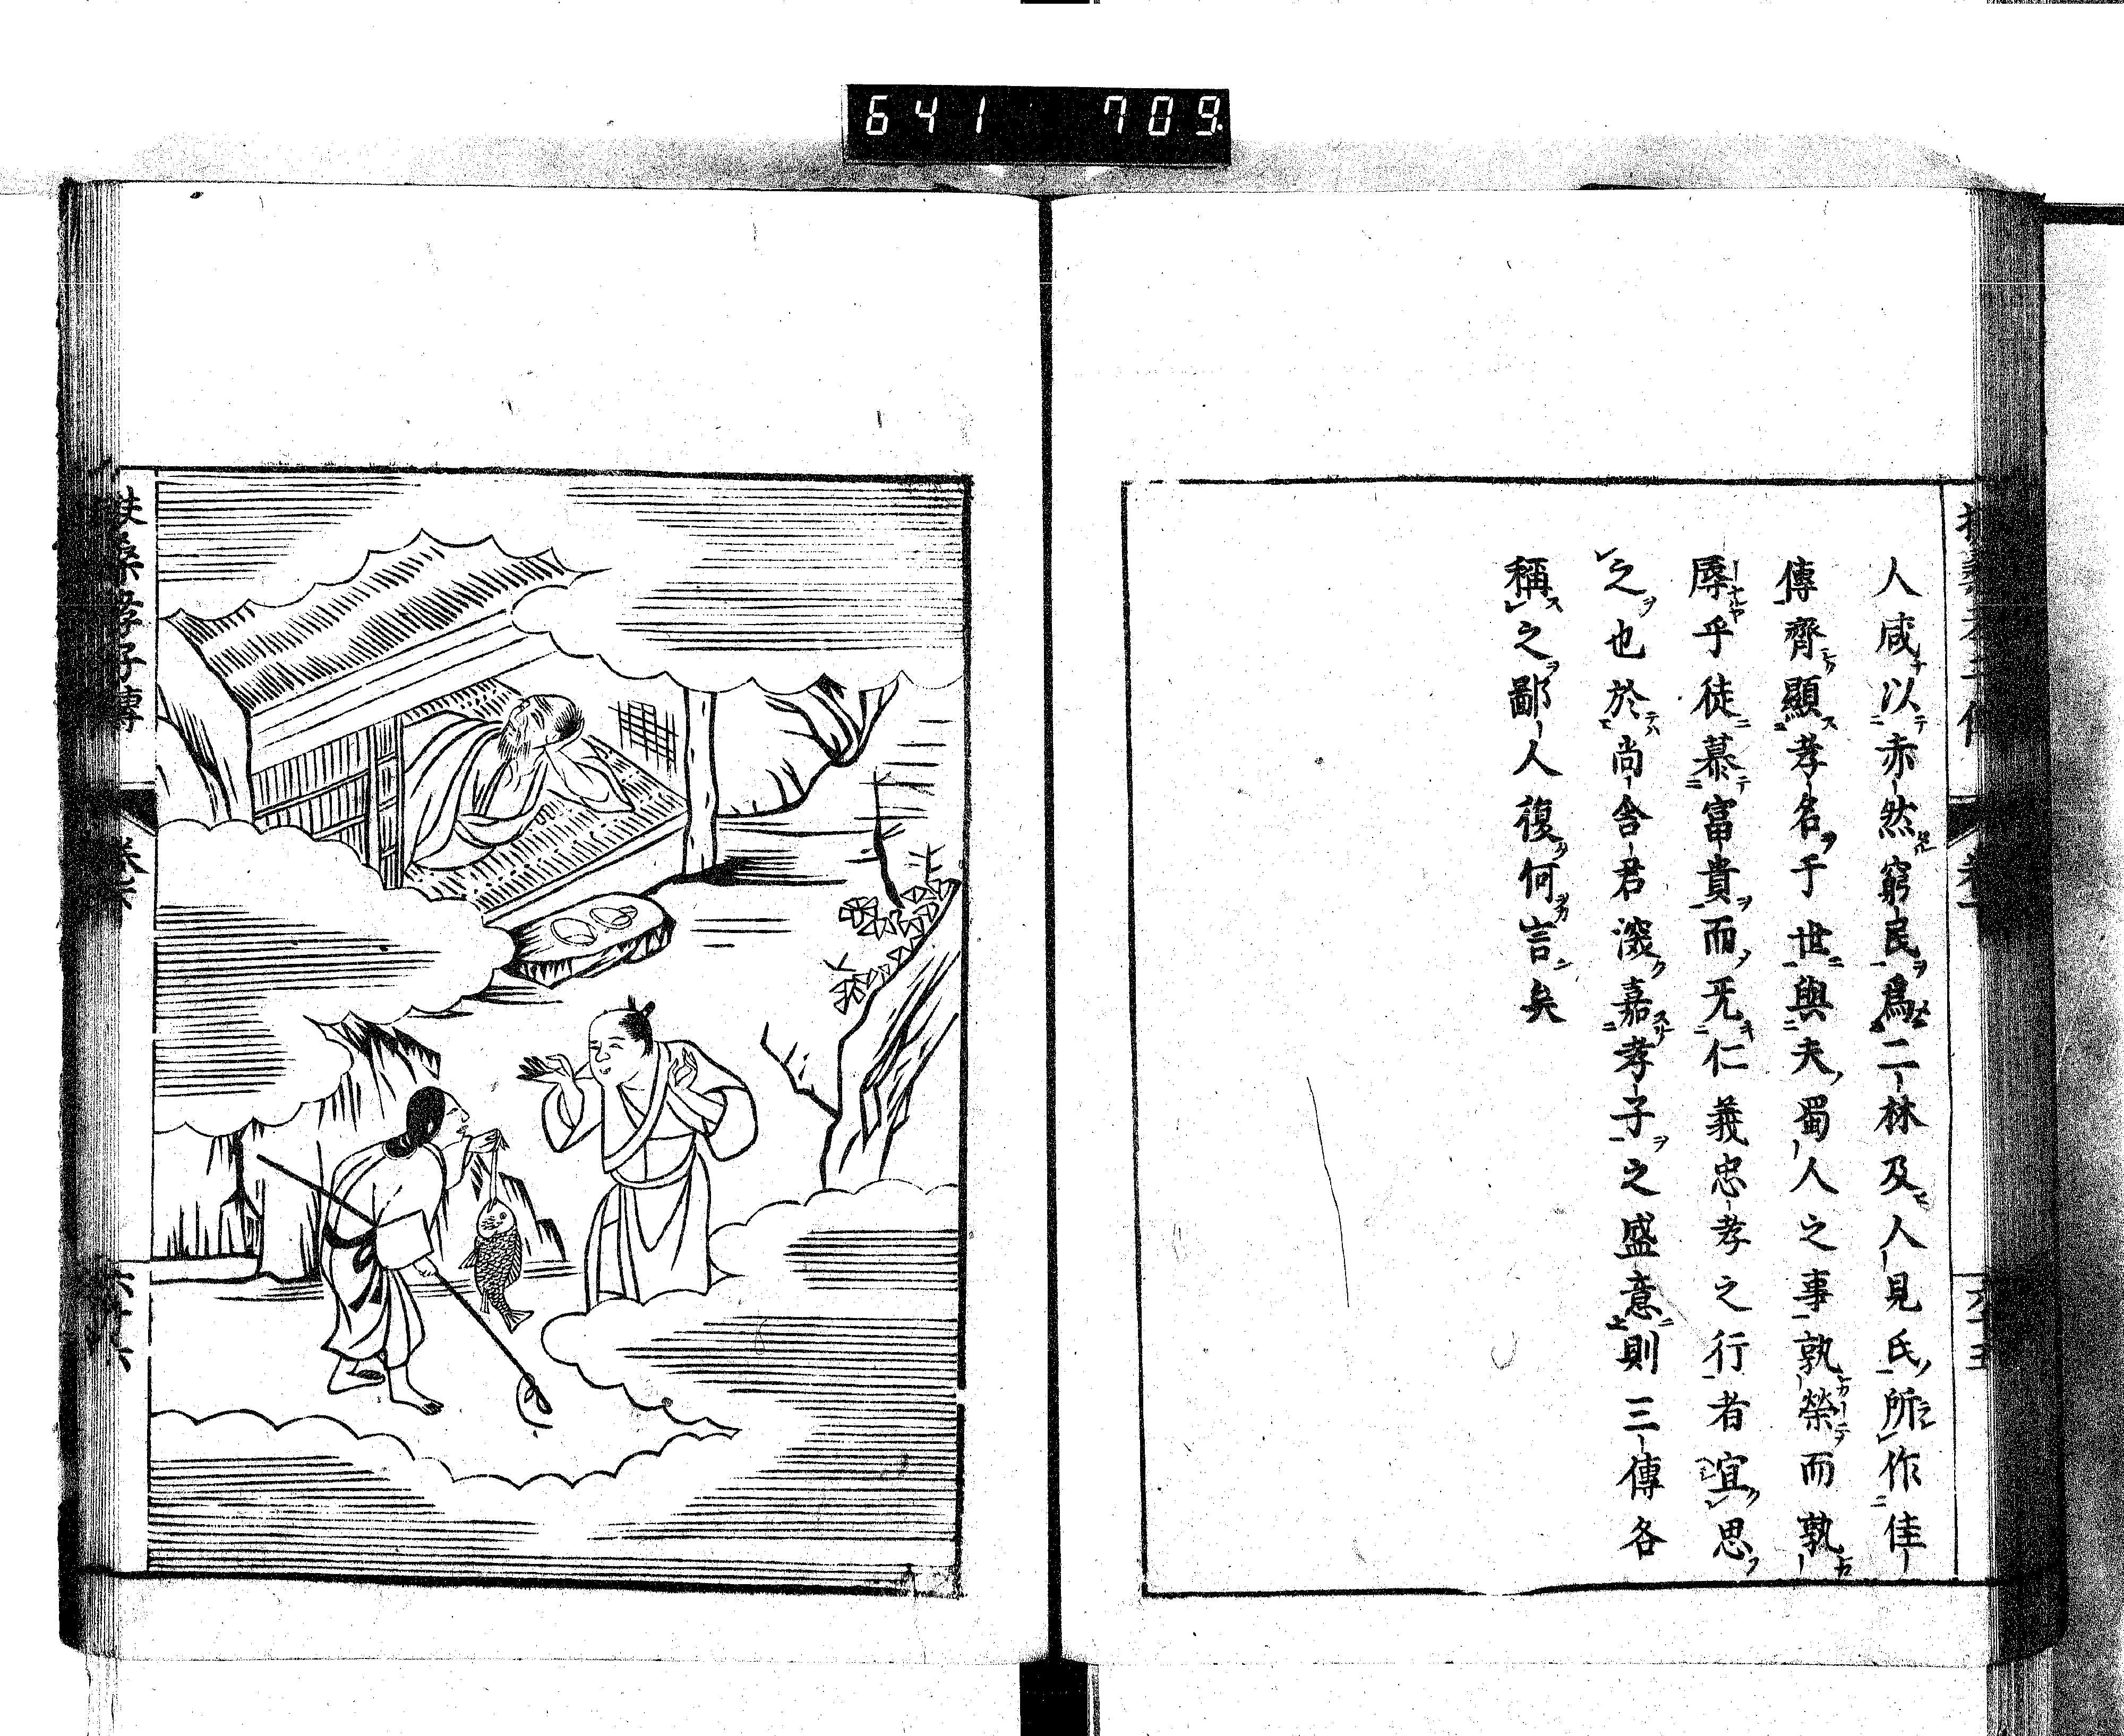 641 709
人咸以赤然窮民爲二林及人見氏所作佳
傳齊顯孝名于世與夫蜀人之事孰榮而孰
辱乎徒慕富貴而无仁義忠孝之行者宜思
之也於尚舎君深嘉孝子之盛意則三傳各
稱之鄙人復何言矣
扶桑孝子傳